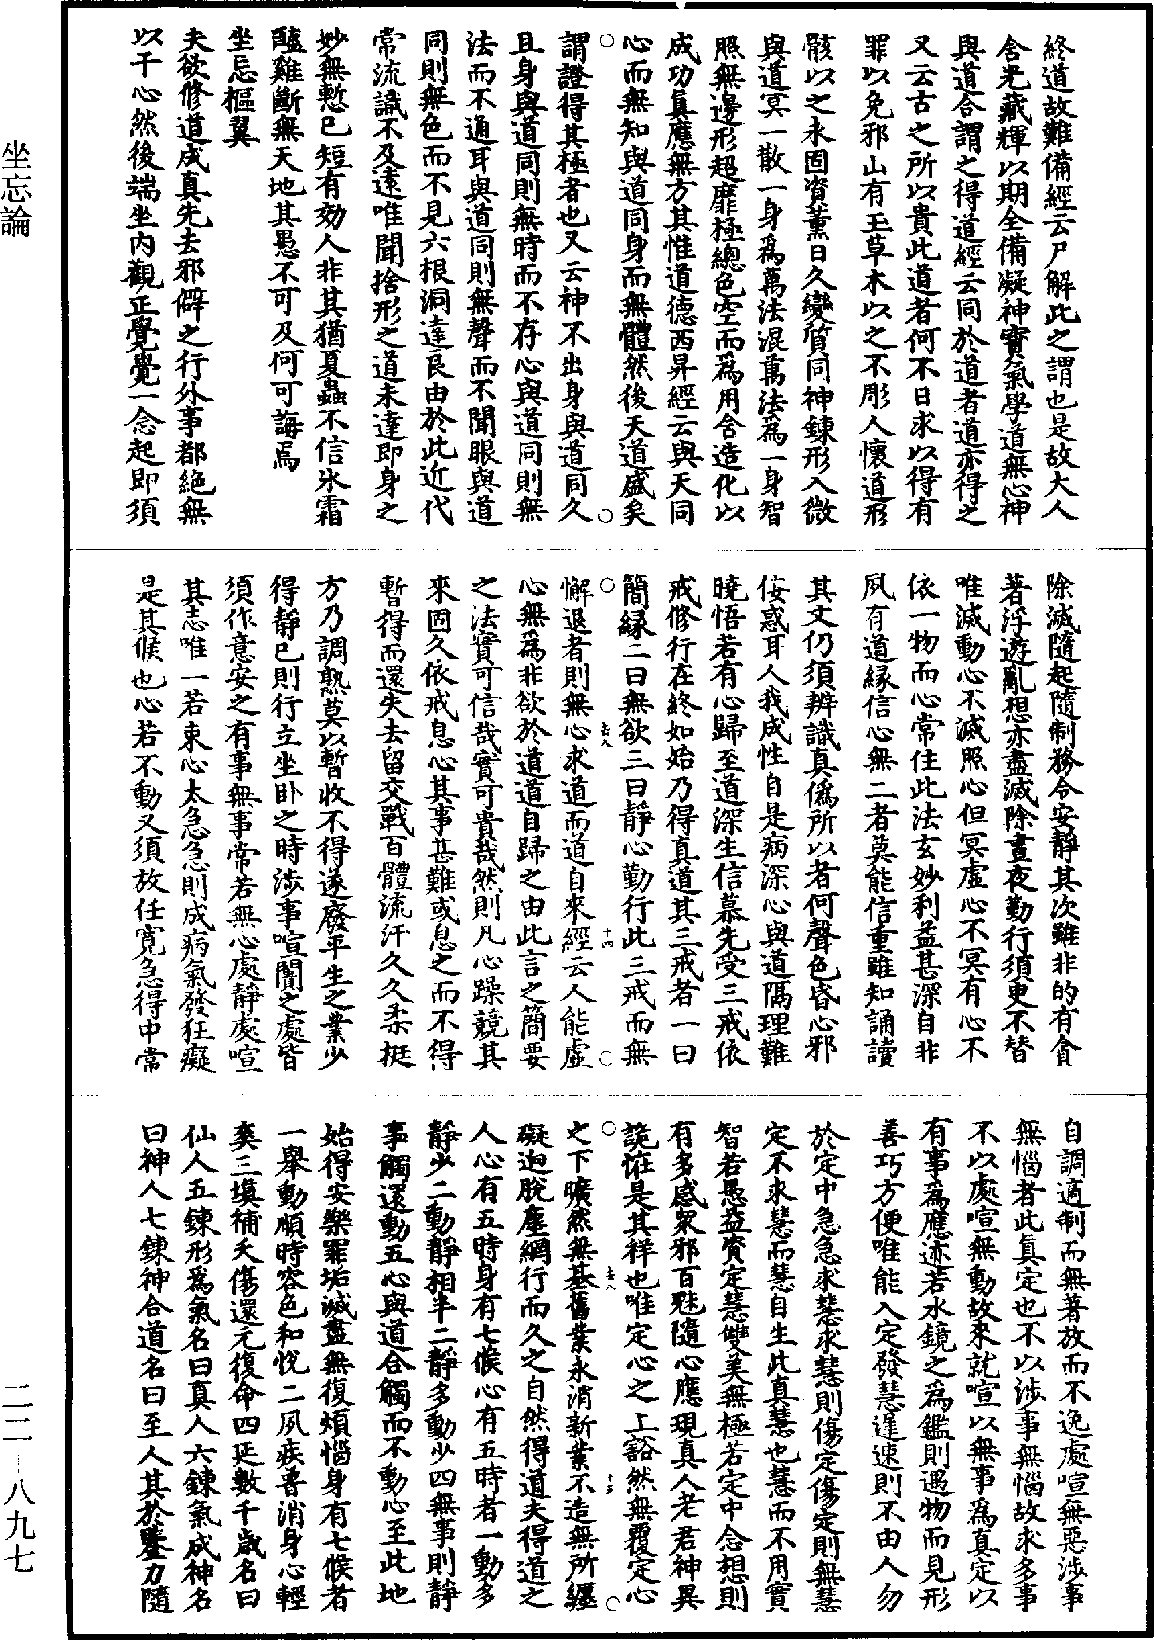 終道故難備經云尸解此之謂也是故大人
含光藏輝以期全備凝神寳氣學道無心神
與道合謂之得道經云同於道者道亦得之
又云古之所以貴此道者何不日求以得有
罪以免邪山有玉草木以之不彫人懷道形
骸以之永固資薰日久變質同神鍊形入微
與道冥一散一身爲萬法混萬法爲一身智
照無邊形超靡極總色空而爲用含造化以
成功真應無方其惟道德西昇經云與天同
心而無知與道同身而無體然後天道盛矣
謂證得其極者也又云神不出身與道同久
且身與道同則無時而不存心與道同則無
法而不通耳與道同則無聲而不聞眼與道
同則無色而不見六根洞達良由於此近代
常流識不及遠唯聞捨形之道未達即身之
妙無慙已短有効人非其猶夏蟲不信氷霜
醯雞斷無天地其愚不可及何可誨焉
坐忘樞翼
夫欲修道成真先去邪僻之行外事都絕無
以干心然後端坐內觀正覺覺一念起即須
除滅隨起隨制務令安靜其次雖非的有貪
著浮遊亂想亦盡滅除晝夜勤行須臾不替
唯滅動心不滅照心但冥虛心不冥有心不
依一物而心常住此法玄妙利益甚深自非
夙有道緣信心無二者莫能信重雖知誦讀
其文仍須辨識真僞所以者何聲色昏心邪
佞惑耳人我成性自是病深心與道隔理難
曉悟若有心歸至道深生信慕先受三戒依
戒修行在終如始乃得真道其三戒者一曰
簡緣二曰無欲三曰靜心勤行此三戒而無
懈退者則無心求道而道自來經云人能虛
心無爲非欲於道道自歸之由此言之簡要
之法實可信哉實可貴哉然則凡心躁競其
來固久依戒息心其事甚難或息之而不得
暫得而還失去留交戰百體流汗久久柔挺
方乃調熟莫以暫收不得遂廢平生之業少
得靜已則行立坐卧之時涉事喧闐之處皆
須作意安之有事無事常若無心處靜處喧
其志唯一若束心太急急則成病氣發狂癡
是其候也心若不動又須放任寬急得中常
自調適制而無著放而不逸處喧無惡涉事
無惱者此真定也不以涉事無惱故求多事
不以處喧無動故來就喧以無事爲真定以
有事爲應迹若水鏡之爲鑑則遇物而見形
善巧方便唯能入定發慧遲速則不由人勿
於定中急急求慧求慧則傷定傷定則無慧
定不求慧而慧自生此真慧也慧而不用實
智若愚益資定慧雙美無極若定中念想則
有多感眾邪百魅隨心應現真人老君神異
詭怪是其祥也唯定心之上豁然無覆定心
之下曠然無基舊業永消新業不造無所纏
礙迴脫塵網行而久之自然得道夫得道之
人心有五時身有七候心有五時者一動多
靜少二動靜相半三靜多動少四無事則靜
事觸還動五心與道合觸而不動心至此地
始得安樂罪垢滅盡無復煩惱身有七候者
一舉動順時容色和悅二夙疾普消身心輕
爽三填補夭傷還元復命四延數千歲名曰
仙人五鍊形爲氣名曰真人六鍊氣成神名
曰神人七鍊神合道名曰至人其於鑒力隨
坐忘論
二二－八九七